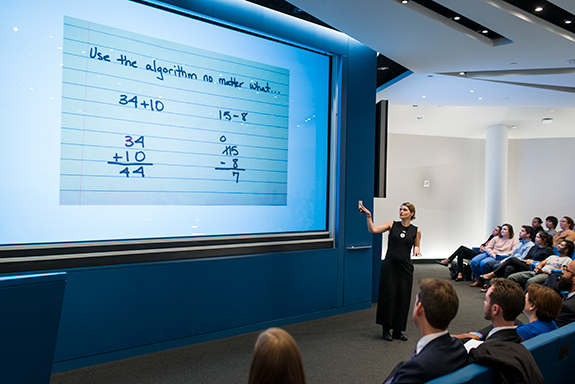 Use the algorithm no matter what...
34+10 15-8
34 0
+10 115
44 - 8
7